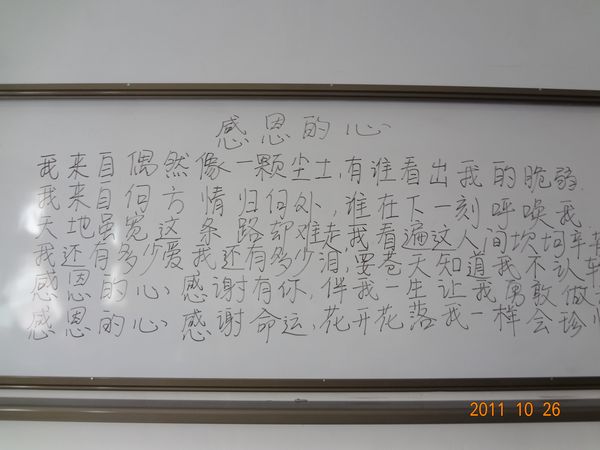 感恩的心
我来自偶然像一颗尘土,有谁看出我的脆弱.
我来自何方情归何处,谁在下一刻呼唤我
天地虽宽这条路却难走,我看遍这人间坎坷辛
我还有多少爱我还有多少泪,要苍天知道我不认
感恩的心感谢有你,伴我一生让我勇敢做
感恩的心感谢命运,花开花落我一样会珍
2011 10 26